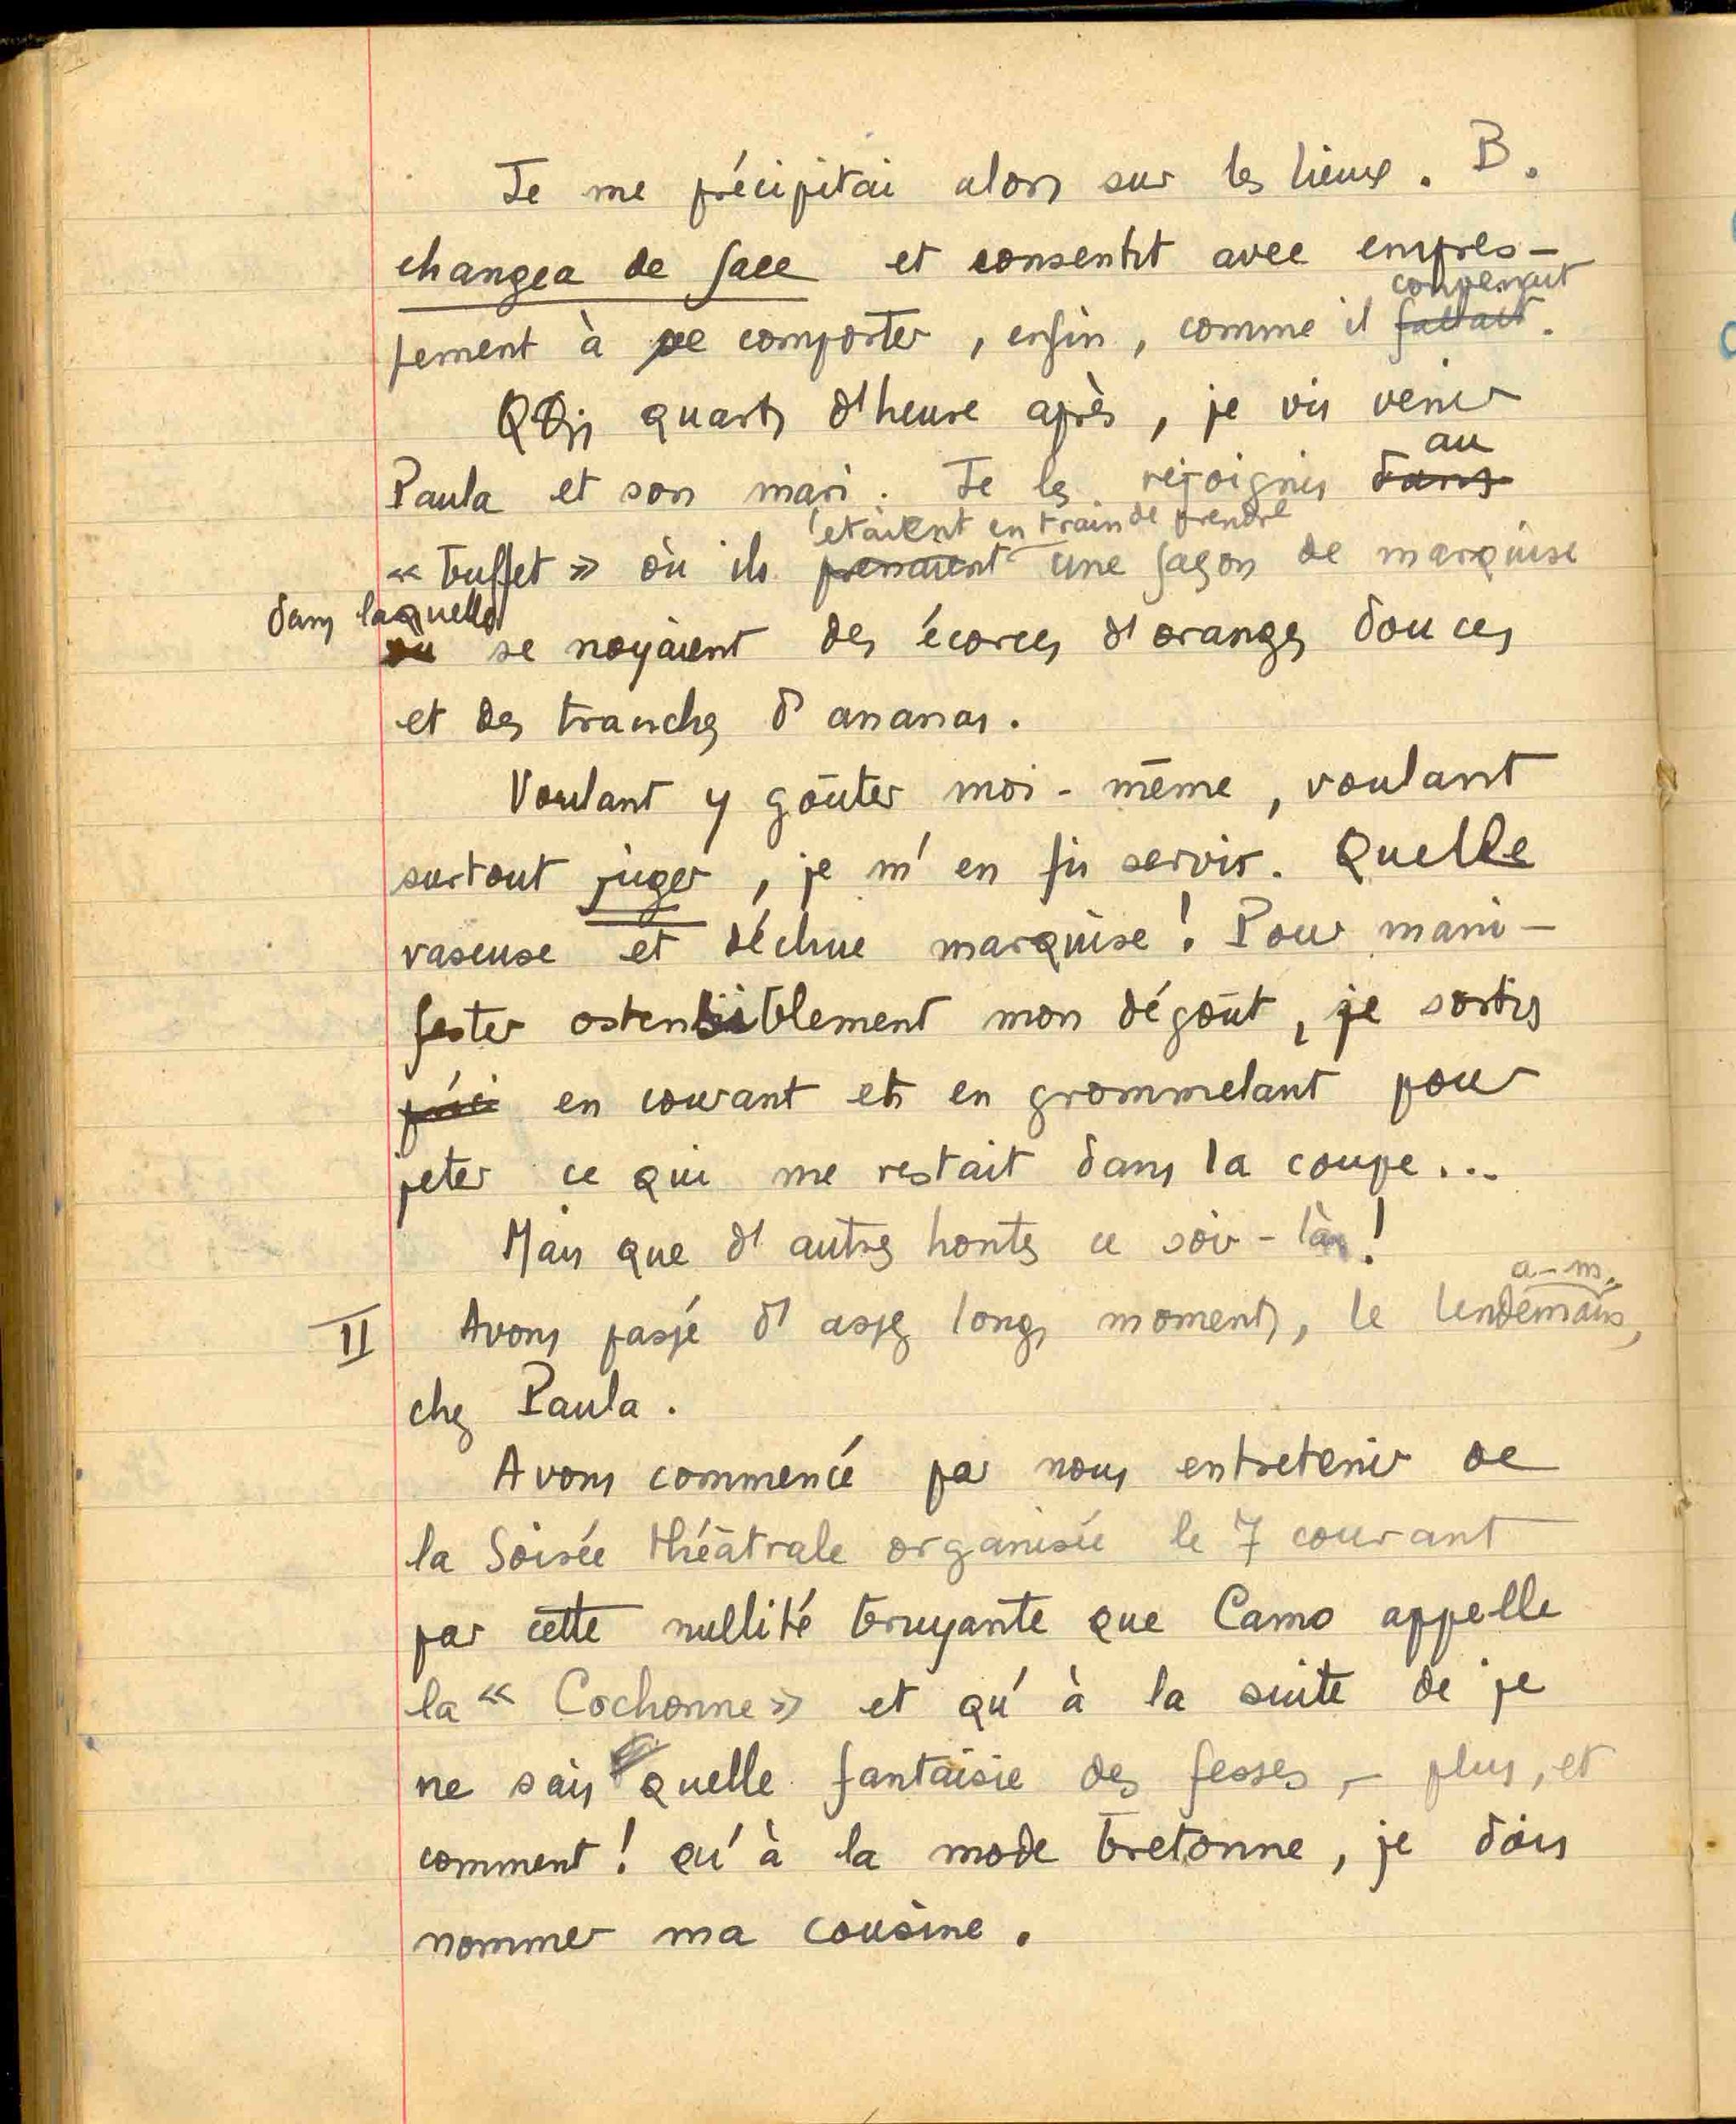 Je me précipitai alors sur les lieux. B.
changea de face et consentit avec empres-
convenait
sement à se comporter, enfin, comme il fallait.
Qqs quarts d'heure après, je vis venir
au
Paula et son mari. Je les rejoignis dans
étaient en train de prendre
« buffet » où ils prenaient une façon de marquise
dans laquelle
où se noyaient des écorces d'oranges douces
et des tranches d'ananas.
Voulant y goûter moi-même, voulant
surtout juger, je m'en fis servir. Quelle
vaseuse et déchue marquise! Pour mani-
fester ostensiblement mon dégoût, je sortis
en courant et en grommelant pour
jeter ce qui me restait dans la coupe...
Mais que d'autres hontes ce soir-là!
a-m.
II Avons passé d'assez longs moments, le lendemain,
chez Paula.
Avons commencé par nous entretenir de
la Soirée théâtrale organisée le 7 courant
par cette nullité bruyante que Camo appelle
la « Cochonne » et qu'à la suite de je
ne sais quelle fantaisie des fesses, - plus, et
comment! qu'à la mode bretonne, je dois
nommer ma cousine.